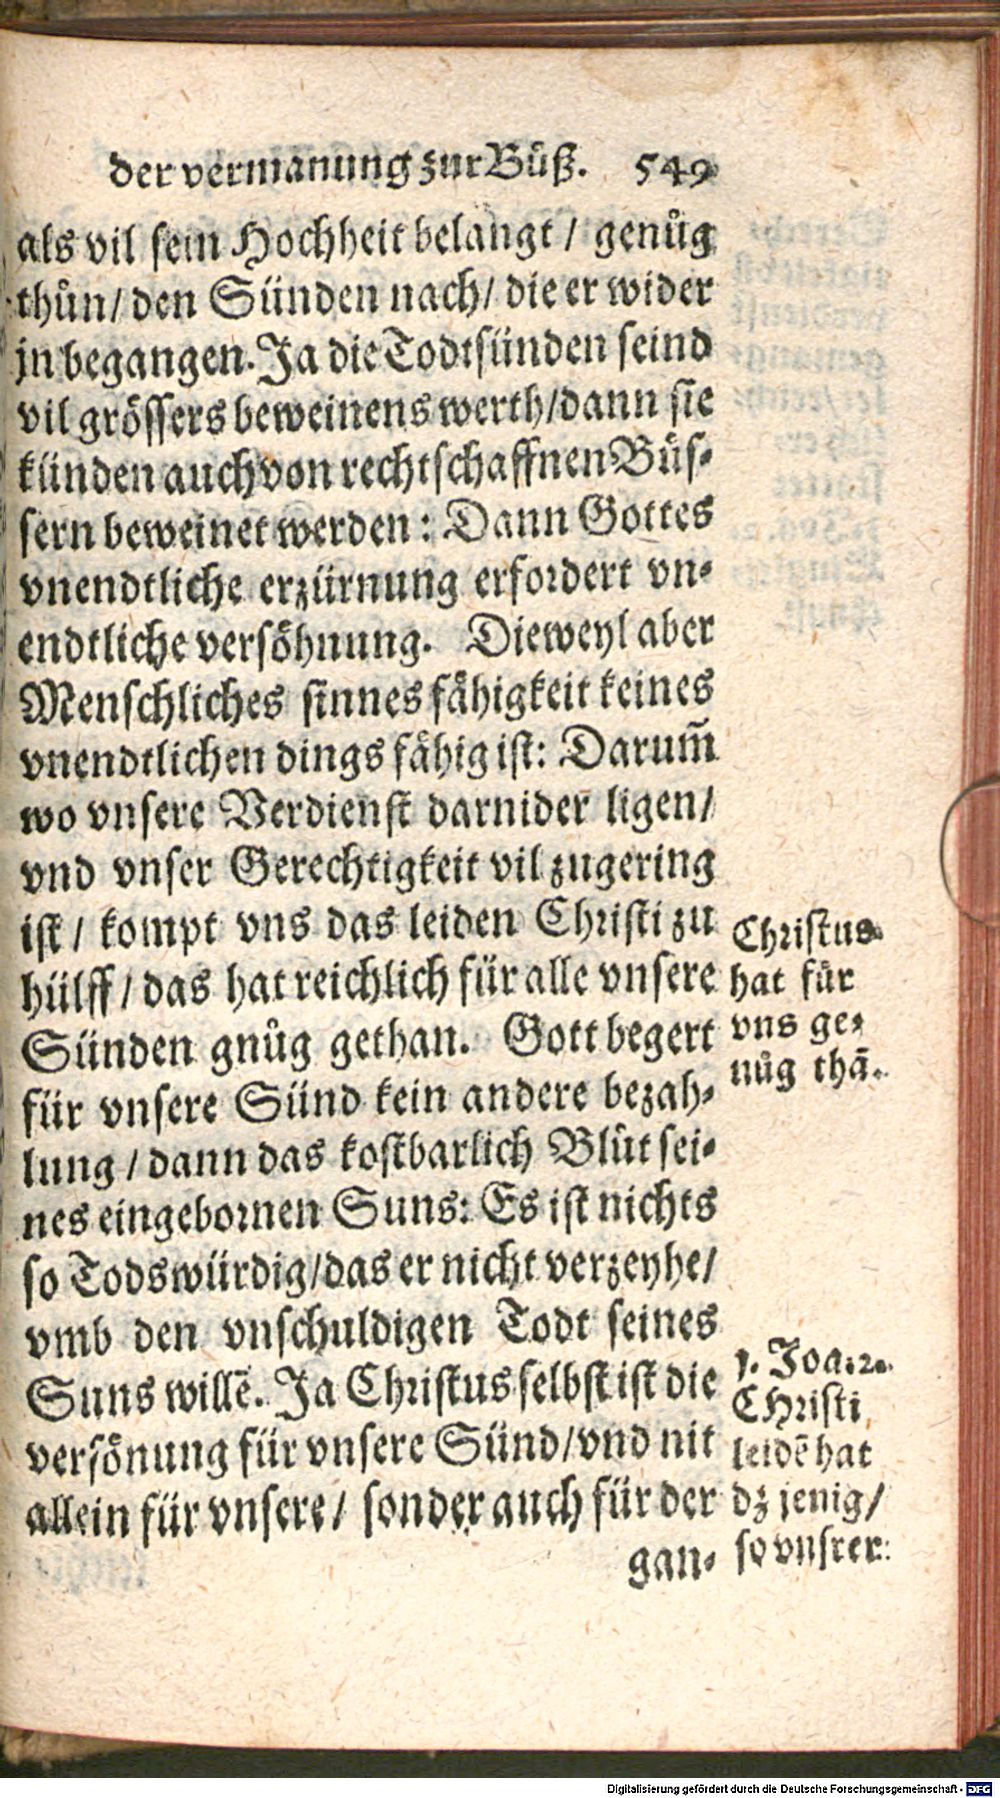 der vermanung zur Bůß. 549
als vil sein Hochheit belangt / genůg
thůn / den Sünden nach / die er wider
jn begangen. Ja die Todtsünden seind
vil grössers beweinens werth / dann sie
künden auch von rechtschaffnen Büs-
sern beweinet werden: Dann Gottes
vnendtliche erzürnung erfordert vn-
endtliche versöhnung. Dieweyl aber
Menschliches sinnes fähigkeit keines
vnendtlichen dings fähig ist: Darum̃
wo vnsere Verdienst darnider ligen /
vnd vnser Gerechtigkeit vil zugering
ist / kompt vns das leiden Christi zu
hülff / das hat reichlich für alle vnsere
Sünden gnůg gethan. Gott begert
für vnsere Sünd kein andere bezah-
lung / dann das kostbarlich Blůt sei-
nes eingebornen Suns: Es ist nichts
so Todswürdig / das er nicht verzeyhe /
vmb den vnschuldigen Todt seines
Suns willẽ. Ja Christus selbst ist die
versönung für vnsere Sünd / vnd nit
allein für vnsere / sonder auch für der
gan-
Christus
hat für
vns ge-
nůg thã.
1. Joa. 2.
CHristi
leidẽ hat
dz jenig /
so vnsrer
Digitalisierung gefördert durch die Deutsche Forschungsgemeinschaft - DFG